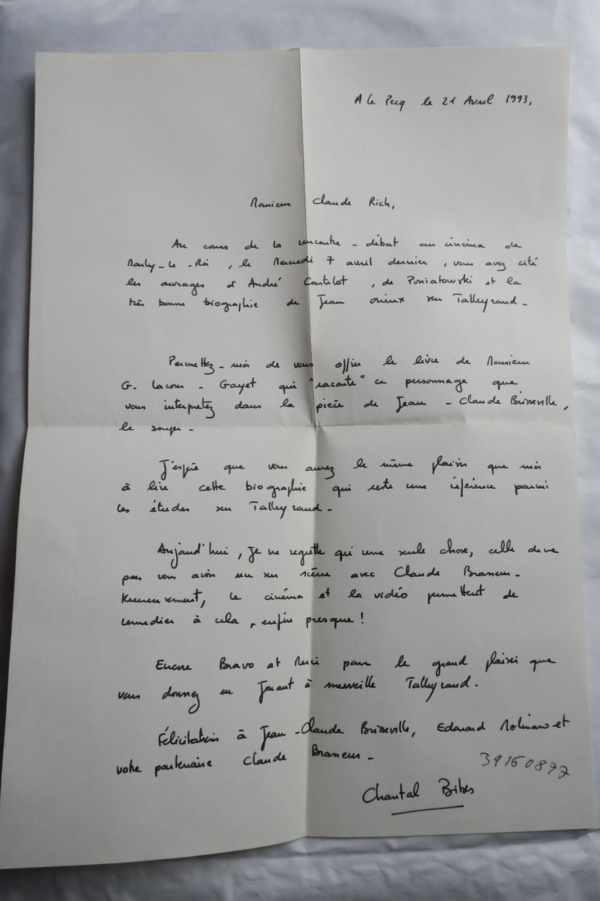 A Le Pecq le 21 Avril 1993,
Monsieur Claude Rich,
Au cours de la rencontre - débat au cinéma de
Marly-le-Roi, le Mercredi 7 avril dernier, vous avez cité
les ouvrages d'André Castelot, de Poniatowski et la
très bonne biographie de Jean Orieux sur Talleyrand.
Permettez-moi de vous offrir le livre de Monsieur
G. Lacour-Gayet qui "raconte" ce personnage que
vous interprétez dans la pièce de Jean-Claude Brisseville,
le souper.
J'espère que vous aurez le même plaisir que moi
à lire cette biographie qui reste une référence parmi
les études sur Talleyrand.
Aujourd'hui, je ne regrette qu'une seule chose, celle de ne
pas vous avoir vu sur scène avec Claude Brasseur.
Heureusement, le cinéma et la vidéo permettent de
remédier à cela, enfin presque!
Encore Bravo et Merci pour le grand plaisir que
vous donnez en jouant à merveille Talleyrand.
Félicitations à Jean-Claude Brisseville, Edouard Molinaro et
votre partenaire Claude Brasseur.
39160872
Chantal Bibes